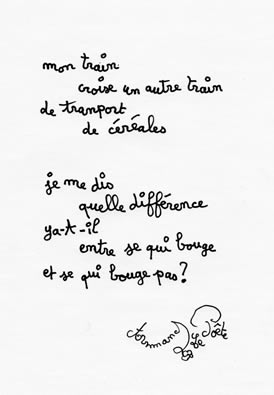 mon train
croise un autre train
de tranport
de céréales
je me dis
quelle différence
ya-t-il
entre se qui bouge
et se qui bouge pas?
Armand Le Poête